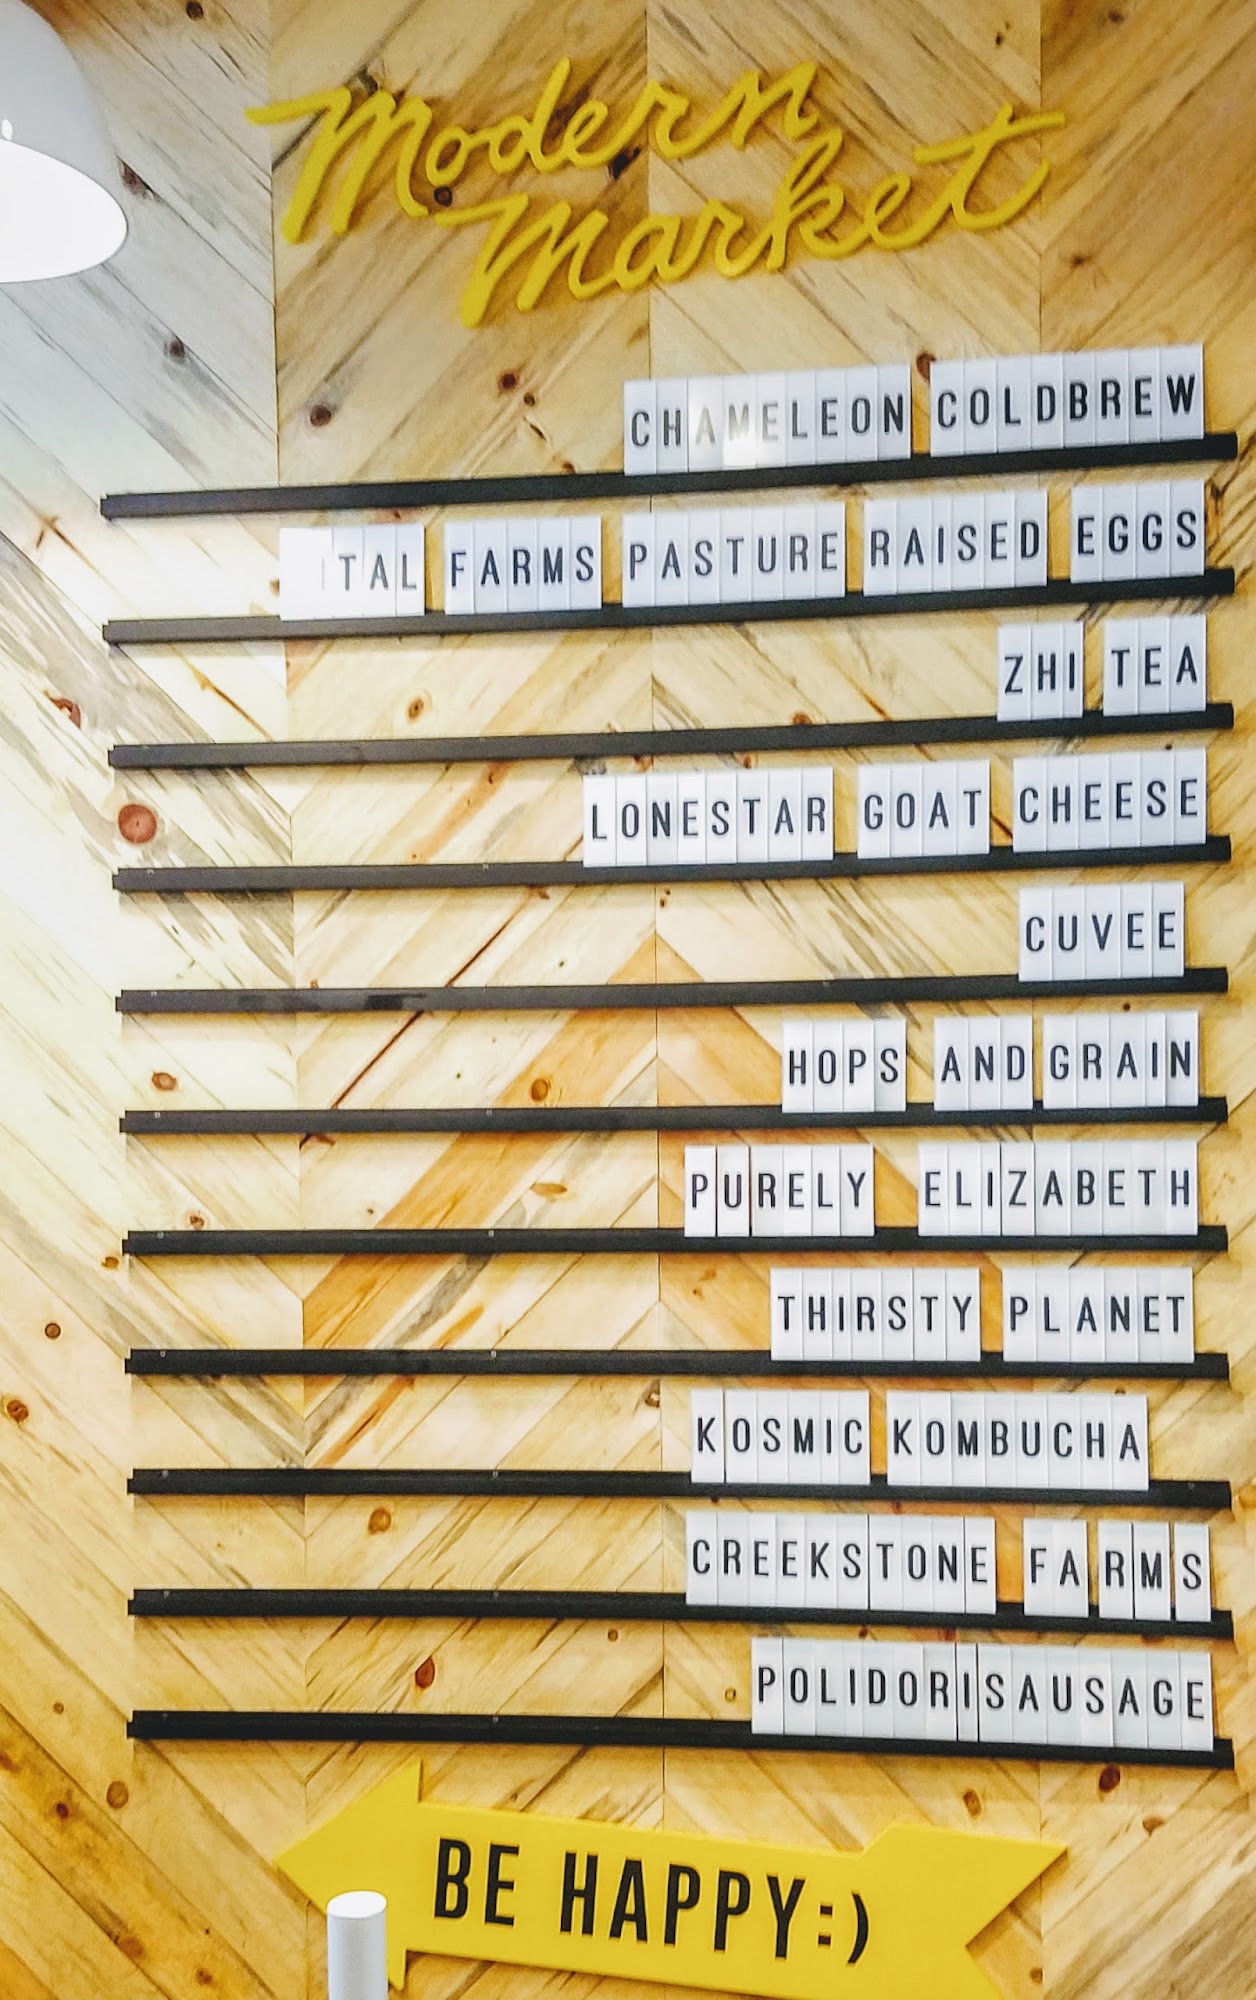 Modern
Market
CHAMELEON COLDBREW
ITAL FARMS PASTURE RAISED EGGS
ZHI TEA
LONESTAR GOAT CHEESE
CUVEE
HOPS AND GRAIN
PURELY ELIZABETH
THIRSTY PLANET
KOSMIC KOMBUCHA
CREEKSTONE FARMS
POLIDORI SAUSAGE
BE HAPPY:)